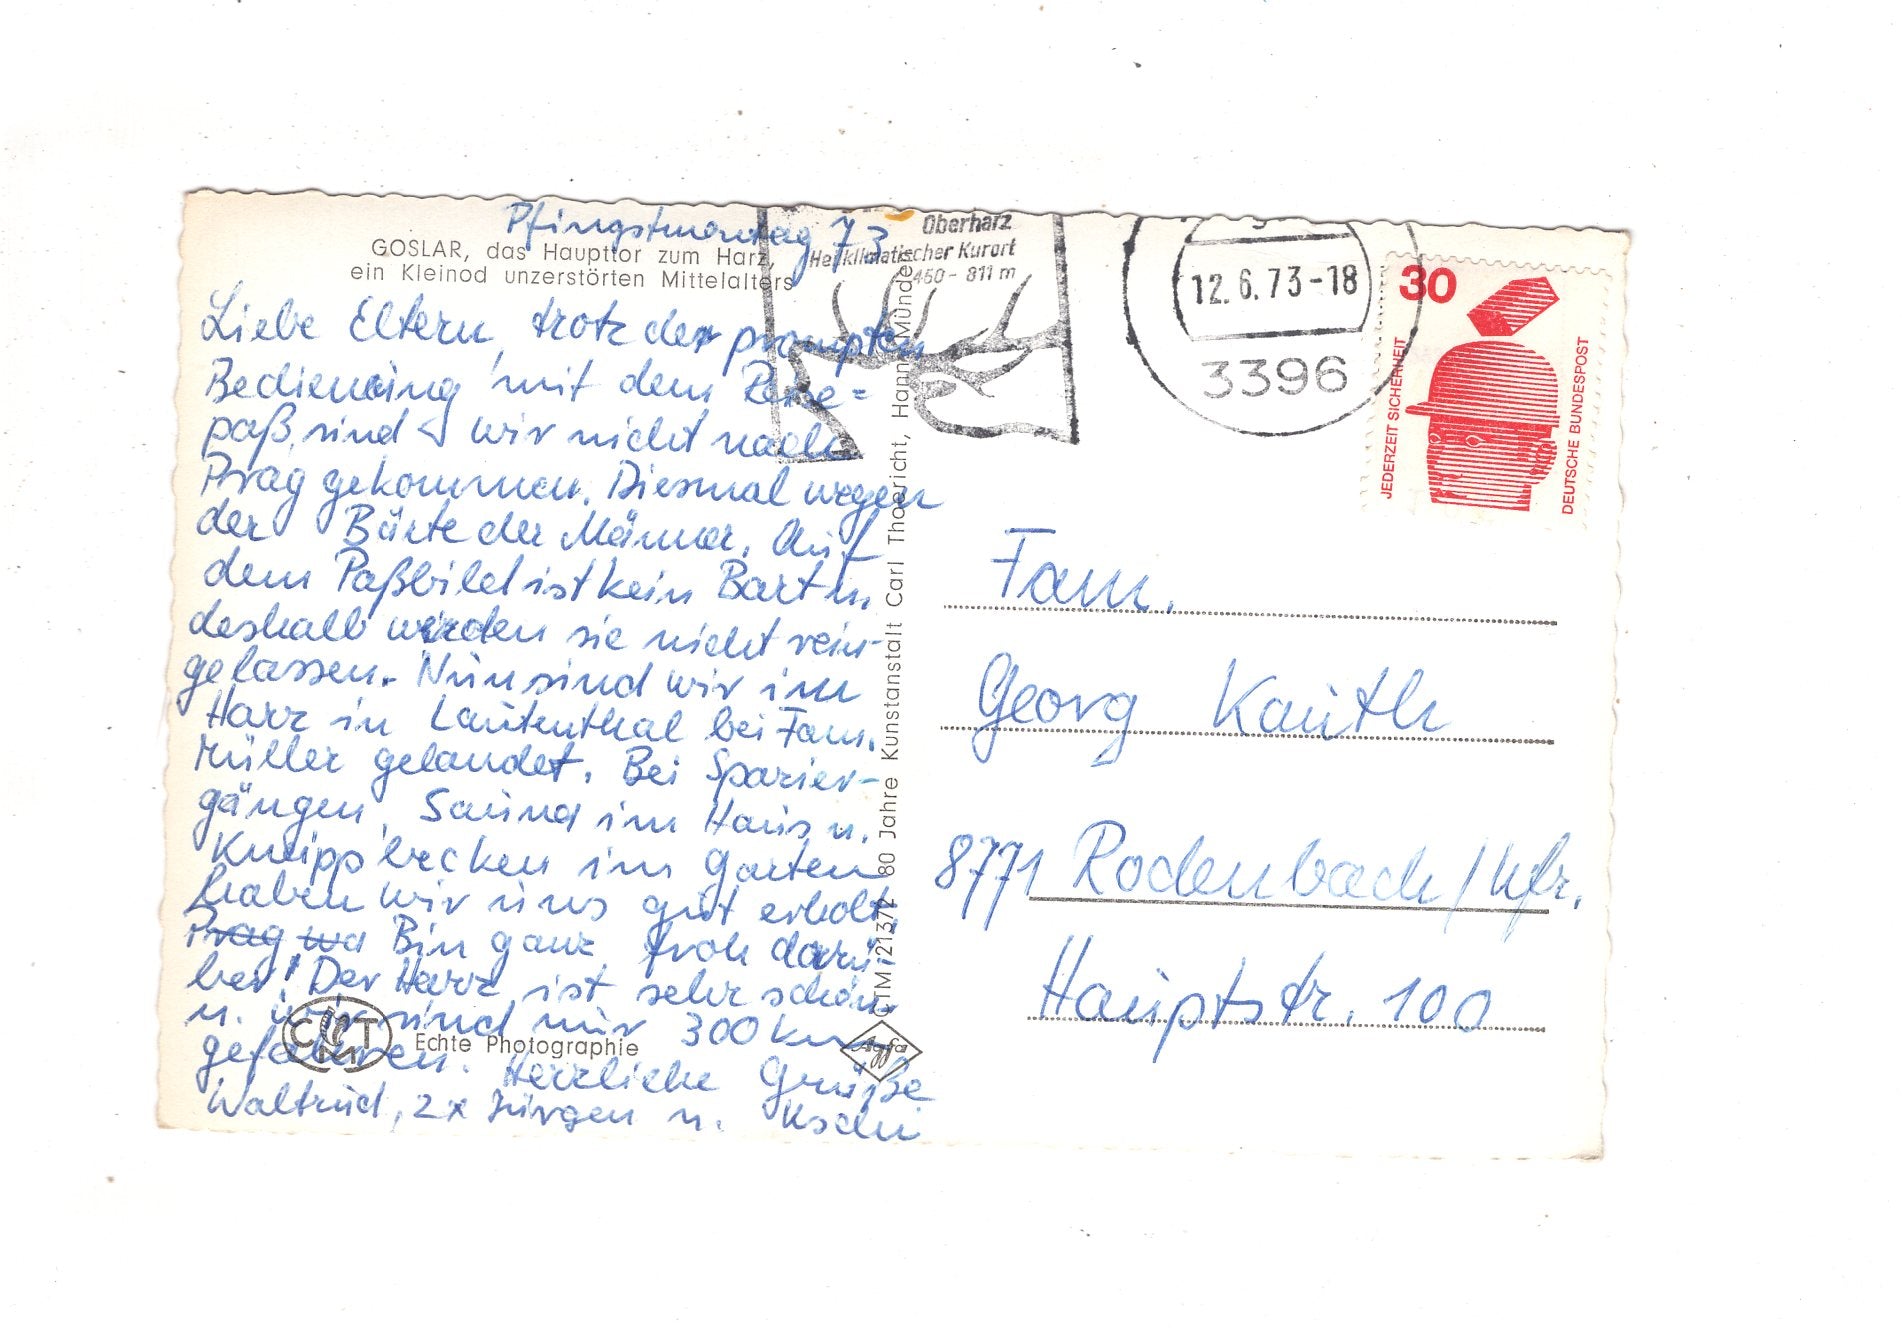 Pfingstmontag 73
GOSLAR, das Haupttor zum Harz,
ein Kleinod unzerstörten Mittelalters
Liebe Eltern, trotz der prompten
Bedienung mit dem Reise=
paß, sind wir nicht nach
Prag gekommen. Diesmal wegen
der Bärte der Männer. Auf
dem Paßbild ist kein Bart u.
deshalb werden sie nicht rein-
gelassen. Nun sind wir im
Harz in Lautenthal bei Fam.
Müller gelandet. Bei Spazier-
gängen, Sauna im Haus u.
Kneippbecken im Garten
haben wir uns gut erholt.
Prag wa Bin ganz froh darü-
ber! Der Harz ist sehr schön
u. wir sind nur 300 km
gefahren. Herzliche Grüße
Waltrud, 2x Jürgen u.
CTM
Echte Photographie
Agfa
CTM 21372 80 Jahre Kunstanstalt Carl Thoericht, Hann. Münden
Oberharz
Heilklimatischer Kurort
460 - 811 m
12.6.73-18
3396
30
JEDERZEIT SICHERHEIT
DEUTSCHE BUNDESPOST
Fam.
Georg Kauth
8771 Rodenbach/Ufr.
Hauptstr. 100